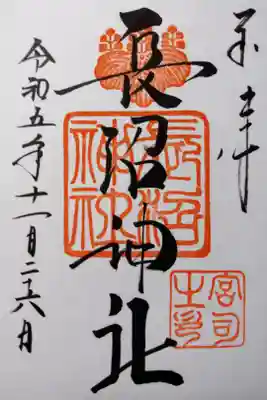 奉拝
長沼神社
令和五年十一月二十六日
長沼神社
宮司之印